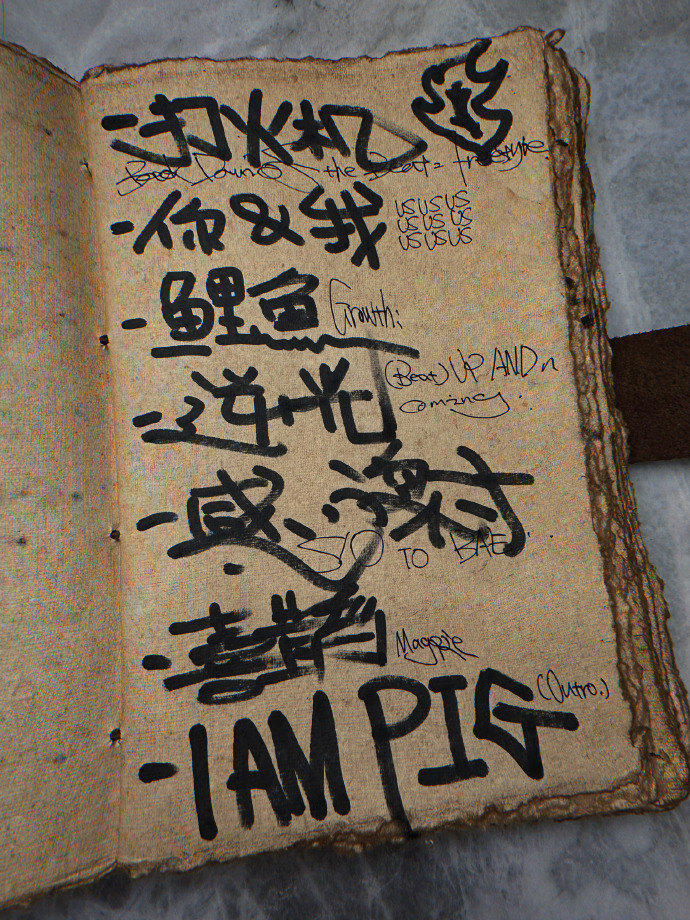 - 打火机
Down the Beat freestyle.
- 你&我 US US US
US US US
US US US
- 鲤鱼 Growth:
- 逆光 (Beat) UP AND
- 感. S/O TO BAE
- 喜鹊 Magpie
- I AM PIG (Outro.)